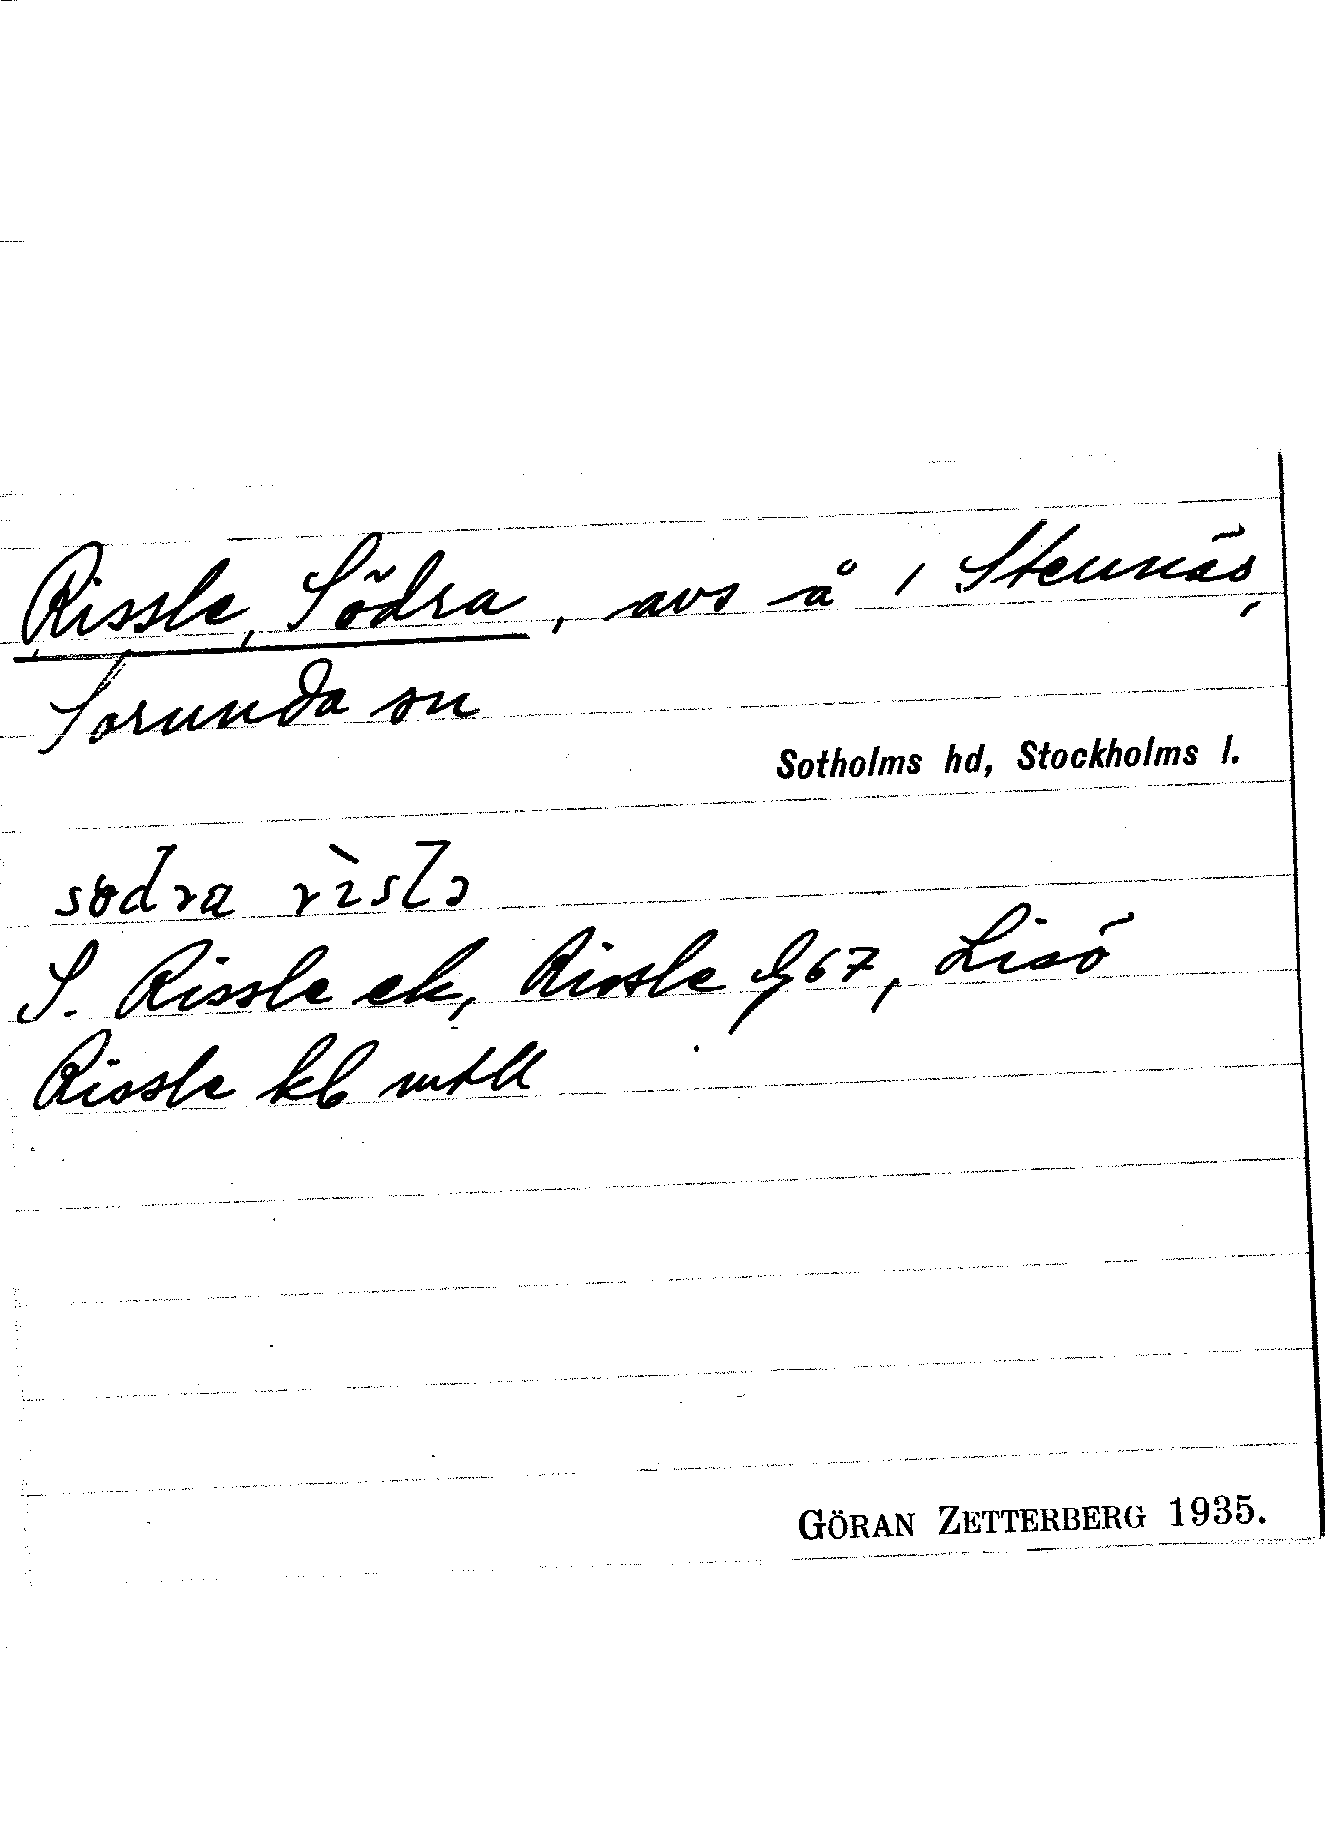 Rissle, Södra, avs å 1 Stennäs,
Sorunda sn
Sotholms hd, Stockholms l.
södra rìslə
S. Rissle ek, Rissle Lg 67, Lisö
Rissle kb mtll
GÖRAN ZETTERBERG 1935.